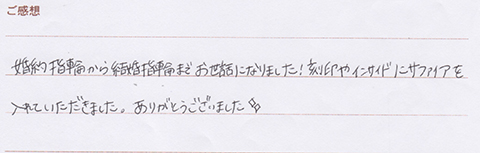 ご感想
婚約指輪から結婚指輪までお世話になりました!刻印やインサイドにサファイアを
入れていただきました。ありがとうございました